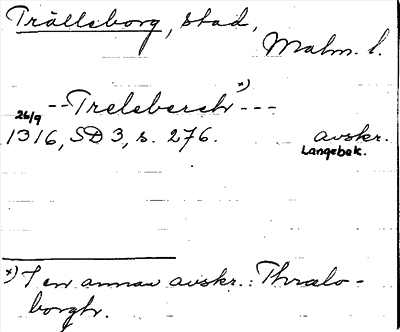 Trälleborg, stad,
Malm. l.
--Trelebersch x) ---
26/9
1316, SD 3, s. 276. avskr.
Langebek.
x) I en annan avskr.: Thrælo-
borgh.